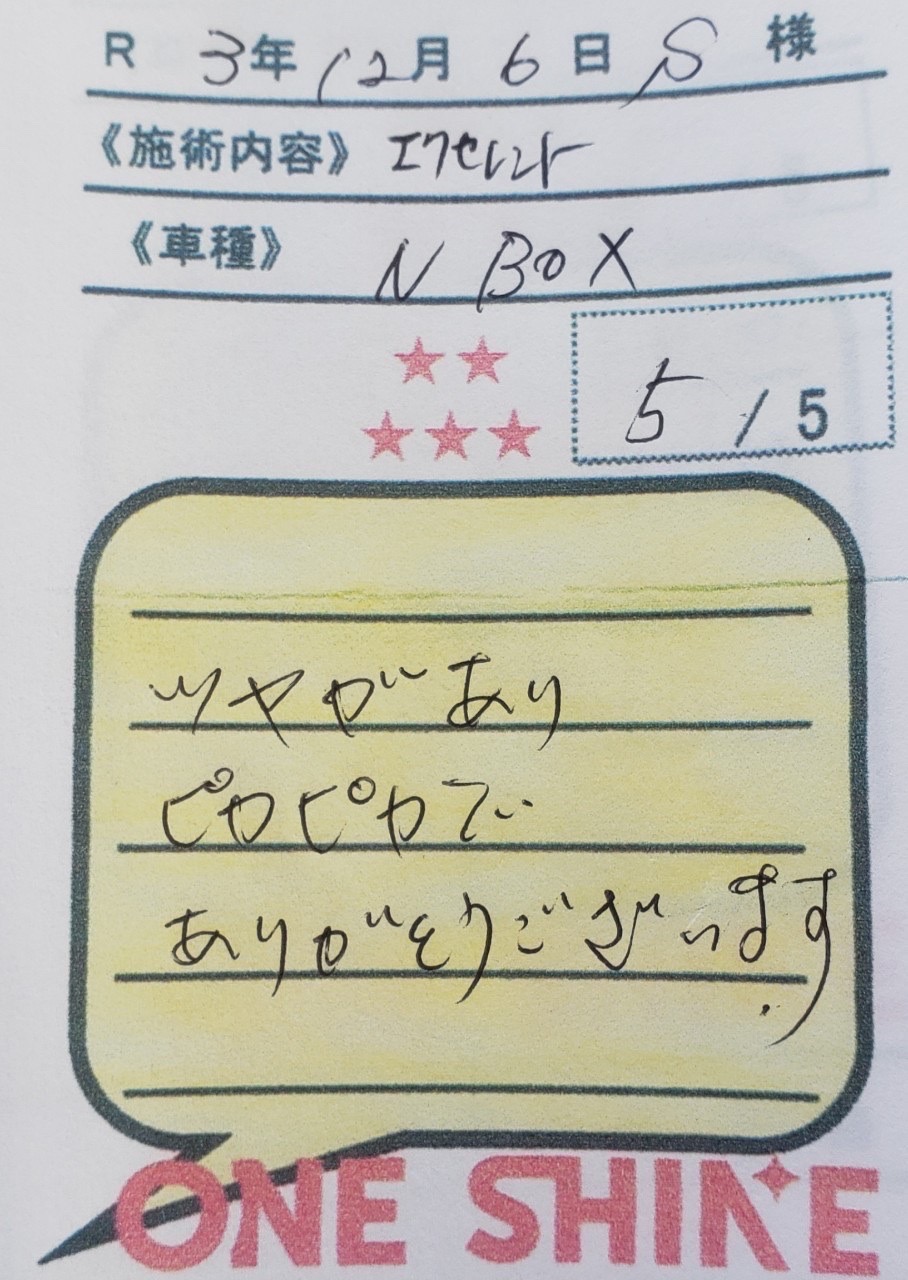 R 3年12月6日 S 様
《施術内容》 エクセレント
《車種》 N BOX
5 / 5
ツヤがあり
ピカピカで
ありがとうございます
ONE SHINE